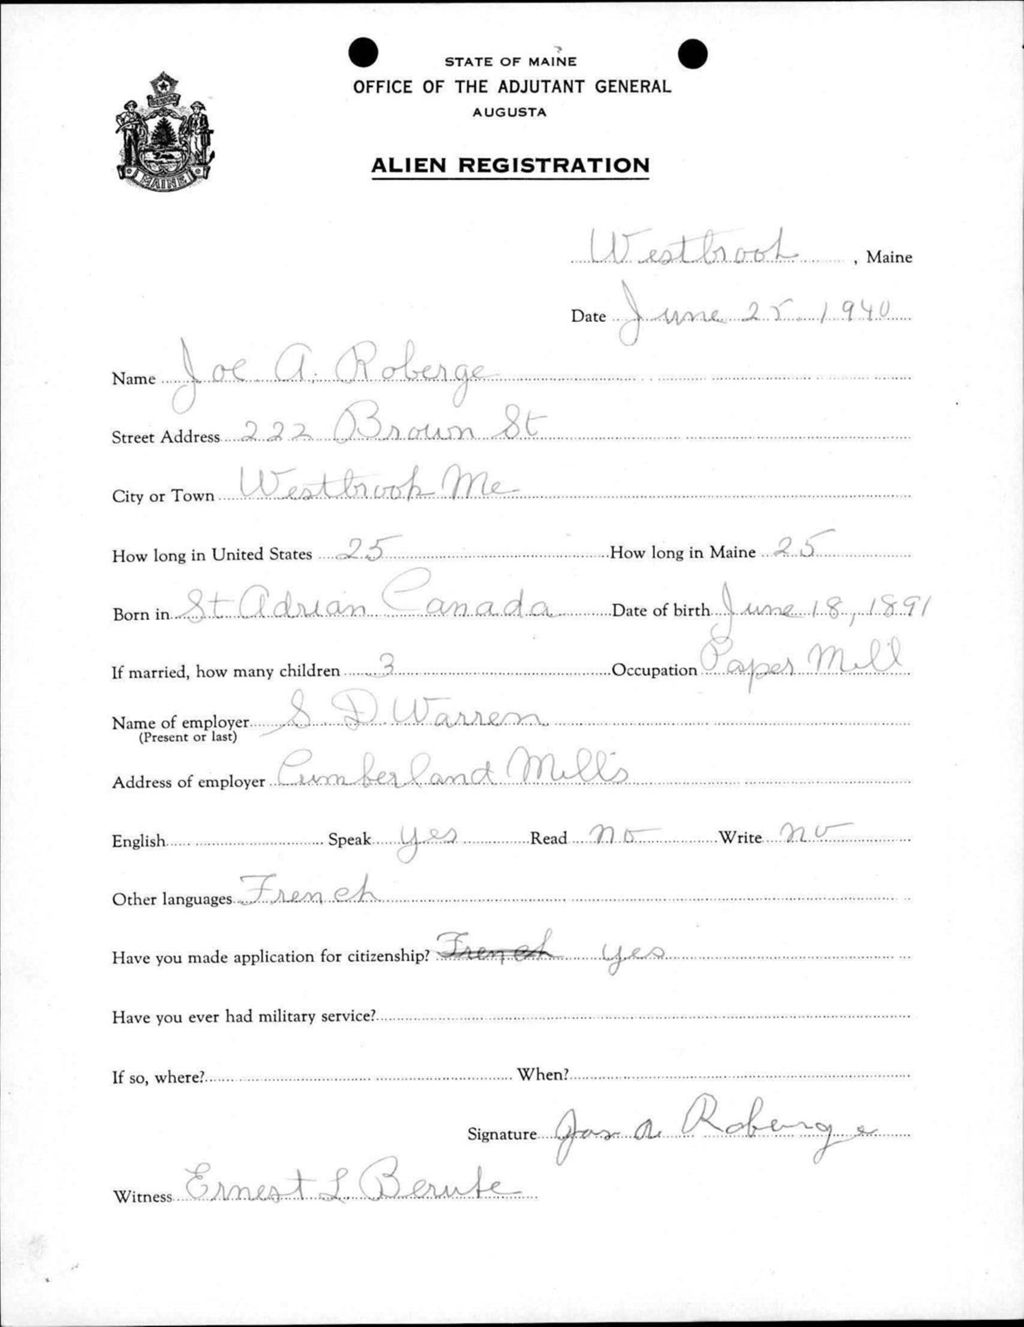 STATE OF MAINE
OFFICE OF THE ADJUTANT GENERAL
AUGUSTA
MAINE
ALIEN REGISTRATION
Westbrook, Maine
Date June 25, 1940
Name Joe A. Roberge
Street Address 222 Brown St
City or Town Westbrook Me
How long in United States 25 How long in Maine 25
Born in St Adrian Canada Date of birth June 18, 1891
If married, how many children 3 Occupation Paper Mill
Name of employer S D Warren
(Present or last)
Address of employer Cumberland Mills
English Speak yes Read no Write no
Other languages French
Have you made application for citizenship? French yes
Have you ever had military service?
If so, where? When?
Signature Jos a Roberge
Witness Ernest L. Berube